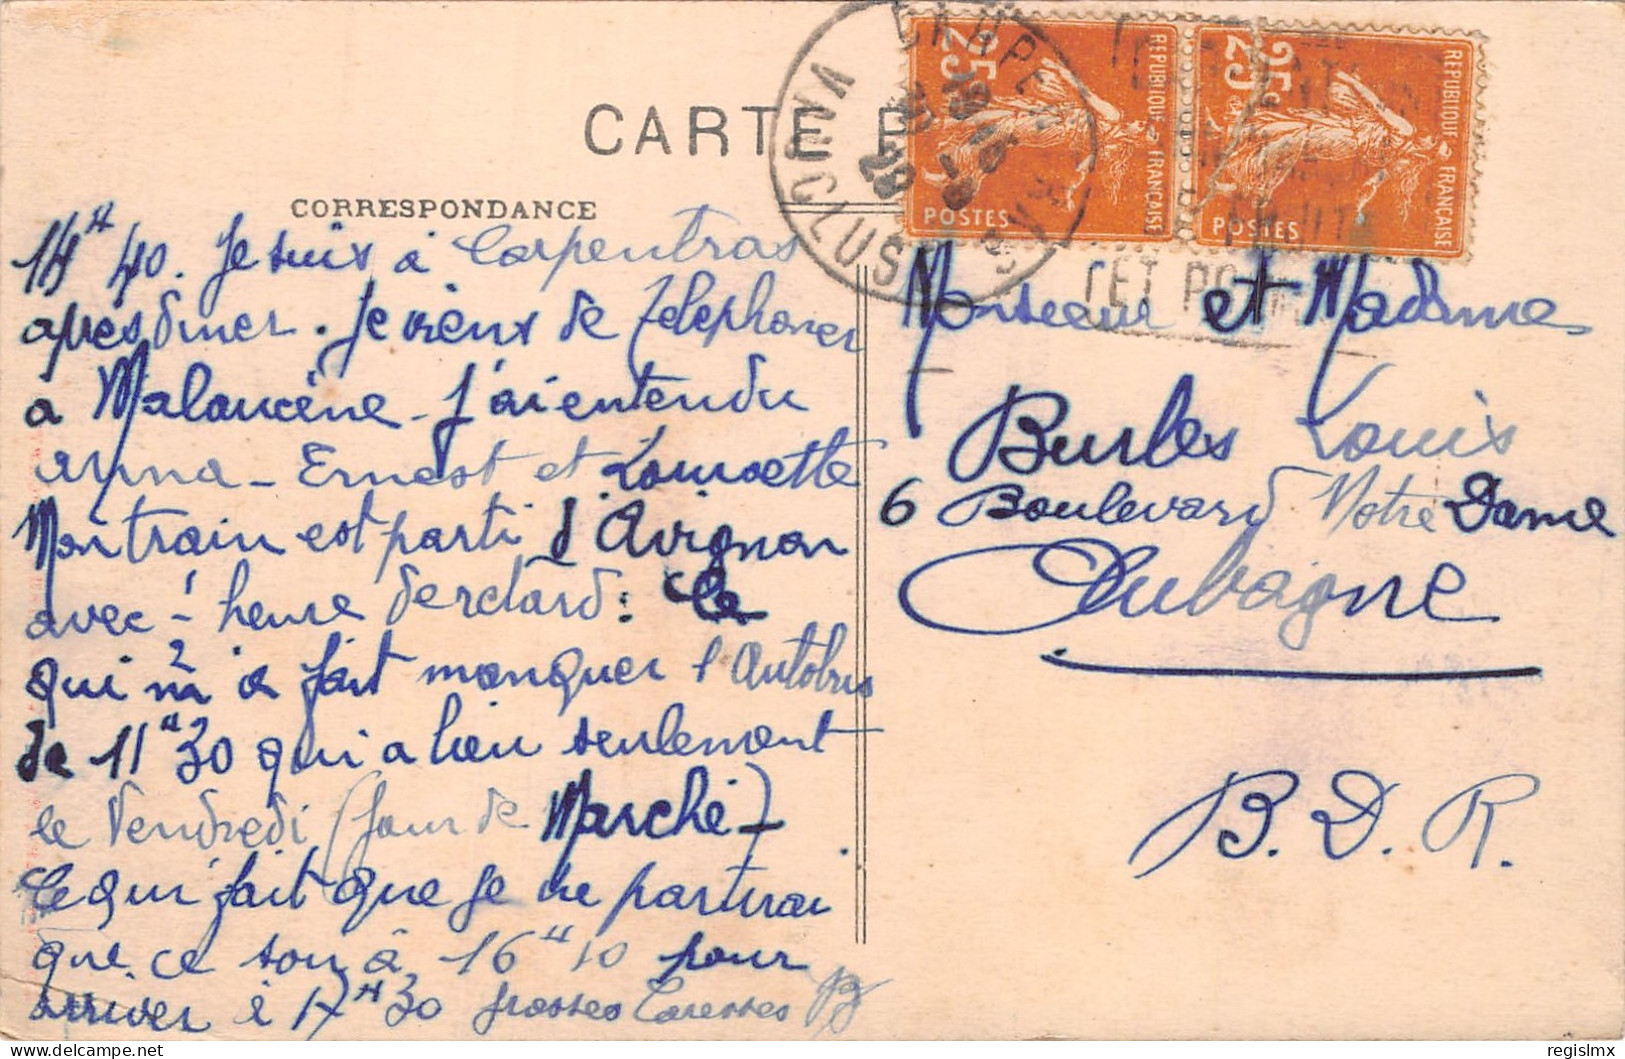 CARTE P
CORRESPONDANCE
14H 40. Je suis à Carpentras
après diner. Je viens de telephoner
a Malaucène - J'ai entendu
anna - Ernest et Lounette
Mon train est parti d'Avignon
avec 1/2 heure de retard : Ce
qui m'a fait manquer l'Autobus
de 11H 30 qui a lieu seulement
le Vendredi (Jour de Marché)
Ce qui fait que je ne partirai
que ce soir à 16H 10 pour
arriver à 17H 30 Grosses Caresses B
RÉPUBLIQUE FRANÇAISE
25c
POSTES
RÉPUBLIQUE FRANÇAISE
25c
POSTES
CARPENTRAS
VAUCLUSE
Monsieur et Madame
Burles Louis
6 Boulevard Notre Dame
Aubagne
B. D. R.
regislmx
delcampe.net